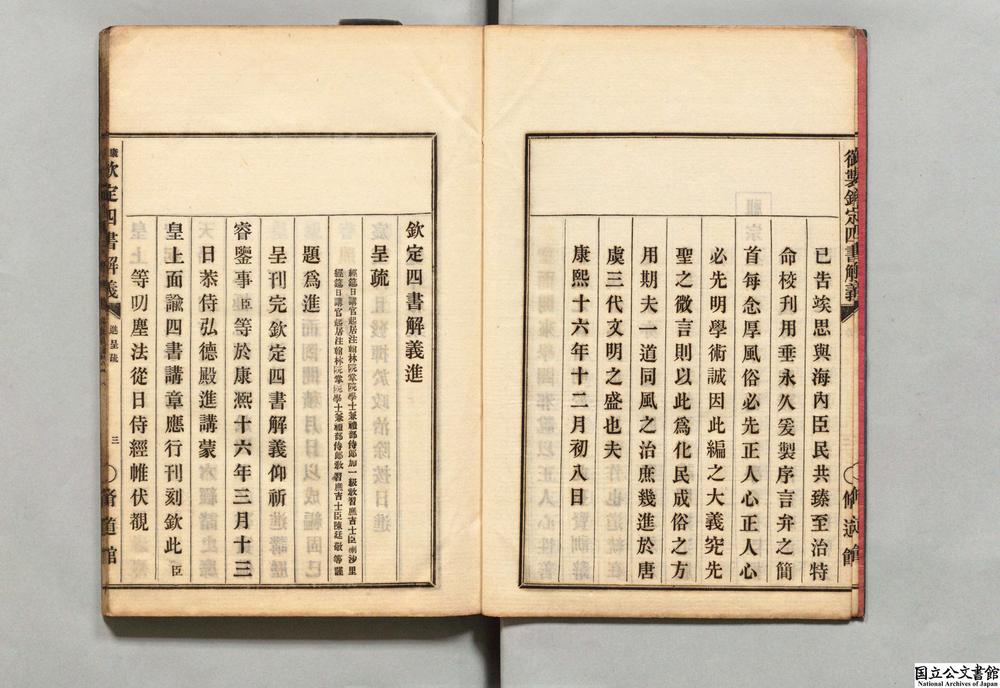 御製欽定四書解義
脩道館
已告竣思與海內臣民共臻至治特
命校刊用垂永久爰製序言弁之簡
首每念厚風俗必先正人心正人心
必先明學術誠因此編之大義究先
聖之微言則以此為化民成俗之方
用期夫一道同風之治庶幾進於唐
虞三代文明之盛也夫
康熙十六年十二月初八日
欽定四書解義進
呈疏
經筵日講官起居注翰林院掌院學士兼禮部侍郎加一級教習庶吉士臣喇沙里
經筵日講官起居注翰林院掌院學士兼禮部侍郎教習庶吉士臣陳廷敬等謹
題為進
呈刊完欽定四書解義仰祈
睿鑒事臣等於康熙十六年三月十三
日恭侍弘德殿進講蒙
皇上面諭四書講章應行刊刻欽此臣
等叨塵法從日侍經帷伏覩
康欽定四書解義
進呈疏
三
脩道館
国立公文書館
National Archives of Japan